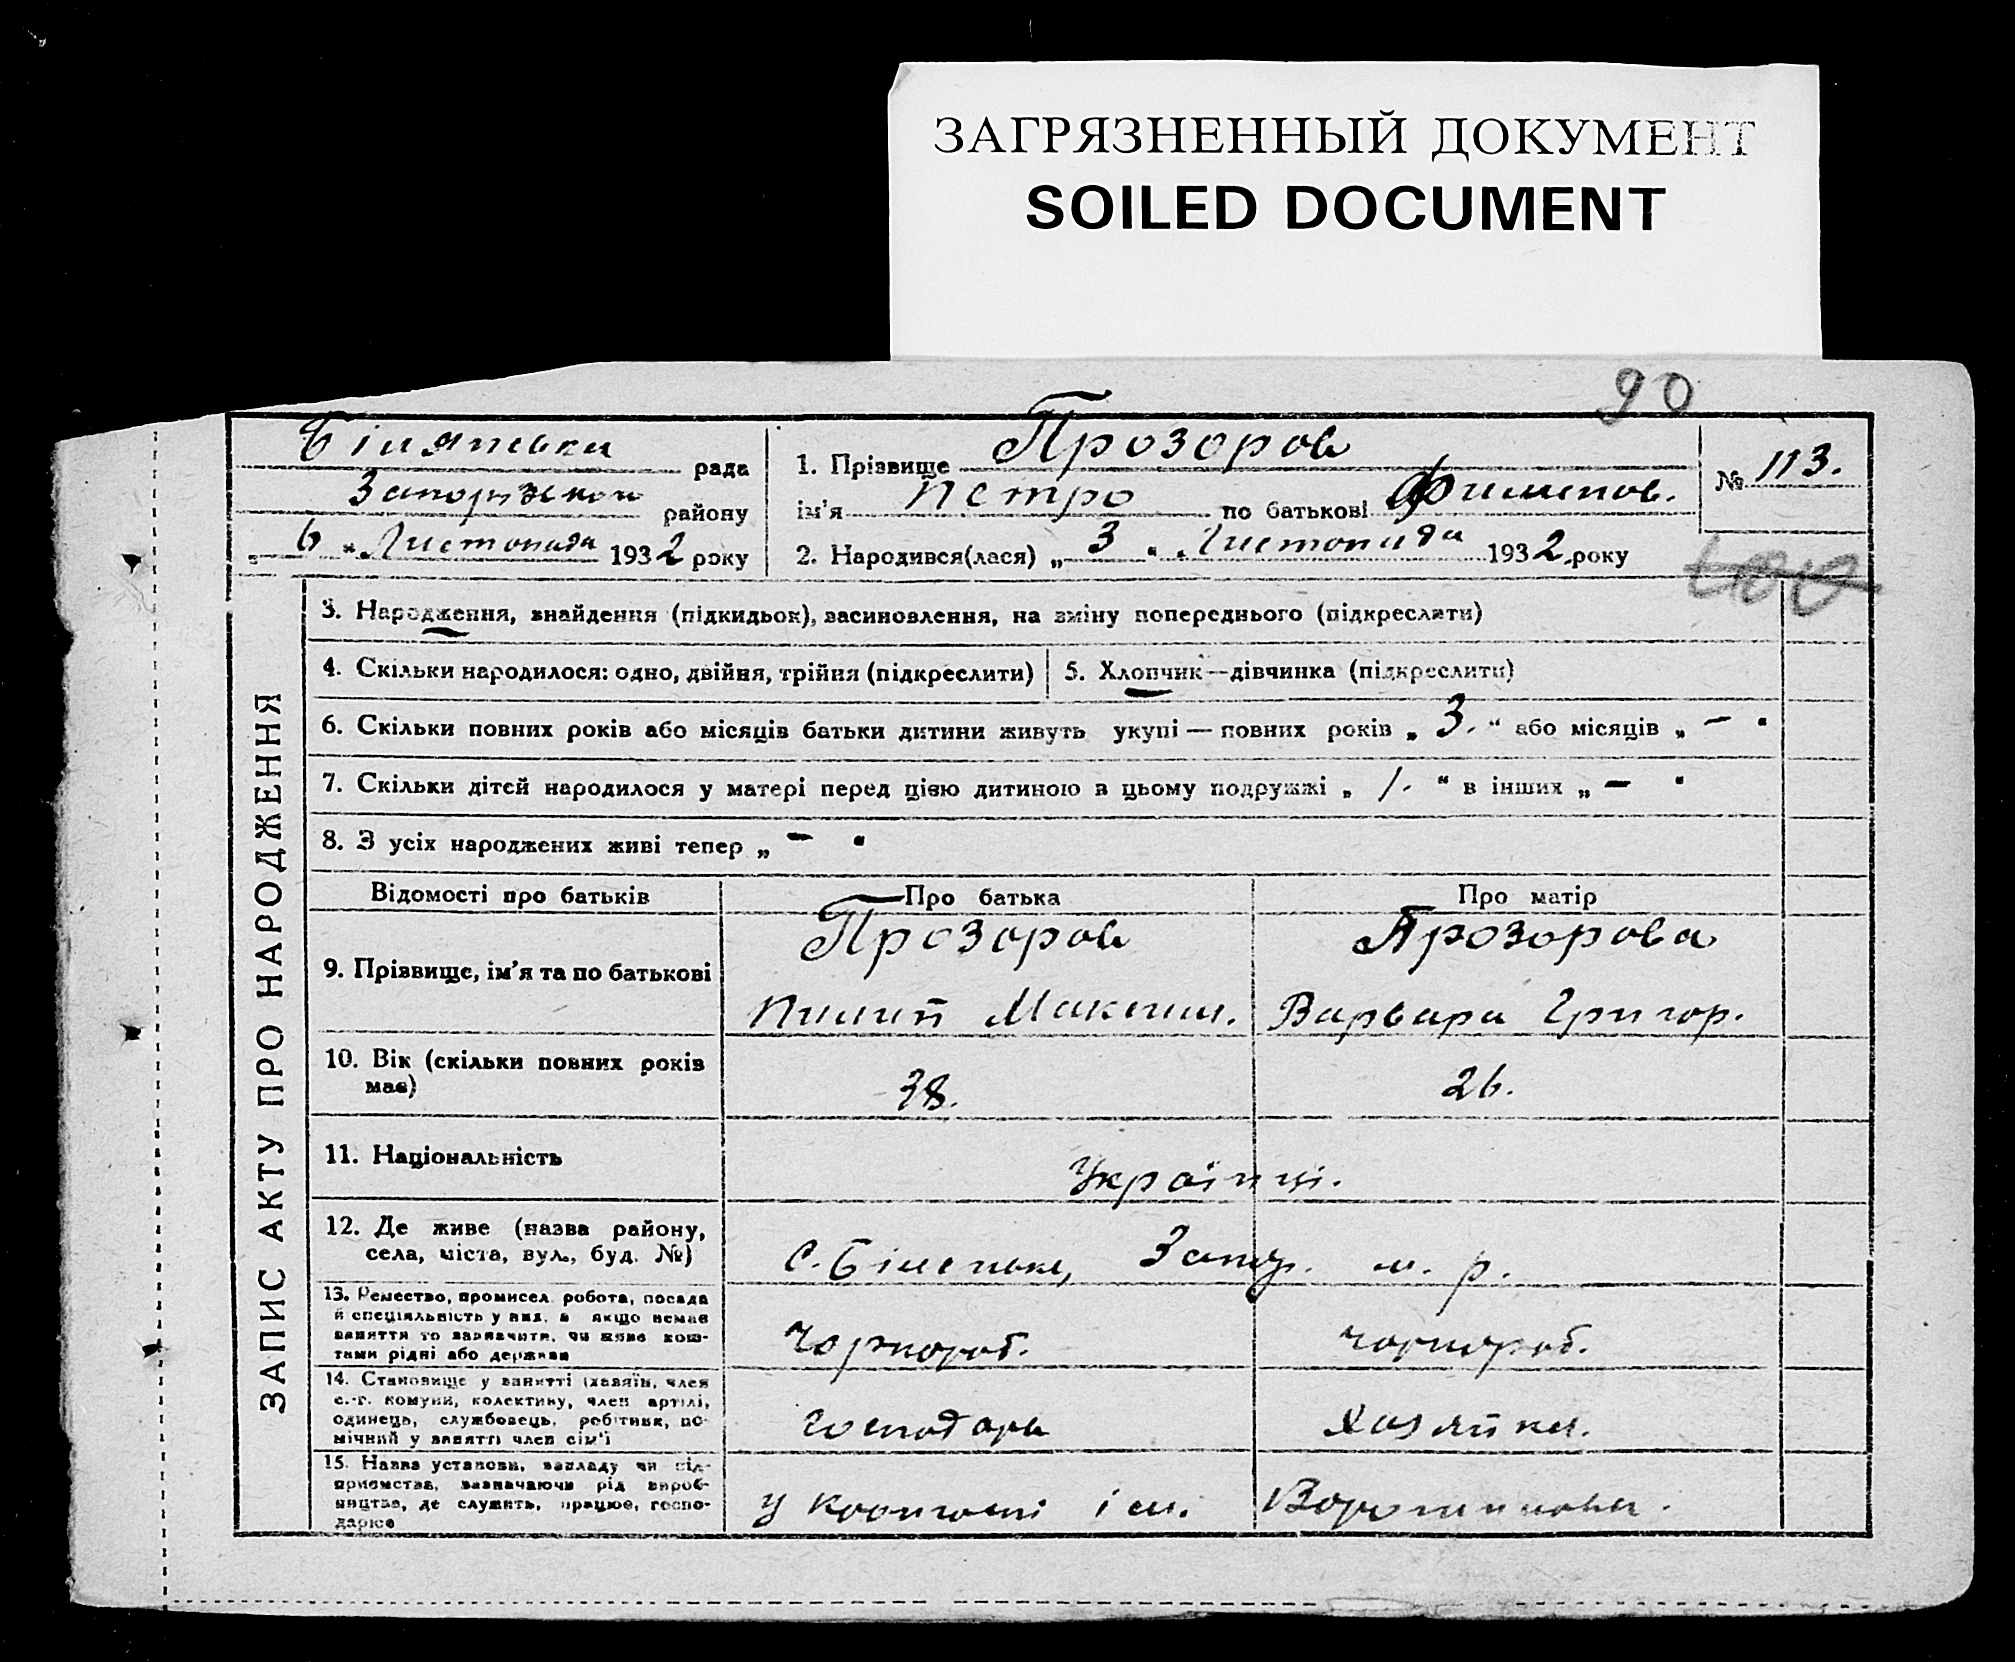 ЗАГРЯЗНЕННЫЙ ДОКУМЕНТ
SOILED DOCUMENT
90
рада
Запорізького району
„ 6 “ Листопада 1932 року
1. Прізвище Прозоров
ім'я Петро по батькові Филипов.
№ 113.
2. Народився(лася) „ 3 “ Листопада 1932 року
ЗАПИС АКТУ ПРО НАРОДЖЕННЯ
3. Народження, знайдення (підкидьок), засиновлення, на зміну попереднього (підкреслити)
4. Скільки народилося: одно, двійня, трійня (підкреслити)
5. Хлопчик—дівчинка (підкреслити)
6. Скільки повних років або місяців батьки дитини живуть укупі — повних років „ 3. “ або місяців „ – “
7. Скільки дітей народилося у матері перед цією дитиною в цьому подружжі „ 1. “ в інших „ – “
8. З усіх народжених живі тепер „ – “
Відомості про батьків
Про батька
Про матір
9. Прізвище, ім'я та по батькові
Прозоров
Пилип Максим.
Прозорова
Варвара Григор.
10. Вік (скільки повних років
має)
38.
26.
11. Національність
Українці.
12. Де живе (назва району,
села, міста, вул., буд. №)
с. Запор. м. р.
13. Ремество, промисел, робота, посада
й спеціяльність у них, а якщо немає
заняття то зазначити, чи живе кош-
тами рідні або держави
Чорнороб.
чорнороб.
14. Становище у занятті (хазяїн, член
с.-г. комуни, колективу, член артілі,
одинець, службовець, робітник, по-
мічний у занятті член сім'ї
господарь
Хазяйка.
15. Назва установи, закладу чи під-
приємства, зазначаючи рід вироб-
ництва, де служить, працює, госпо-
дарює
у колгоспі ім. Ворошилова.